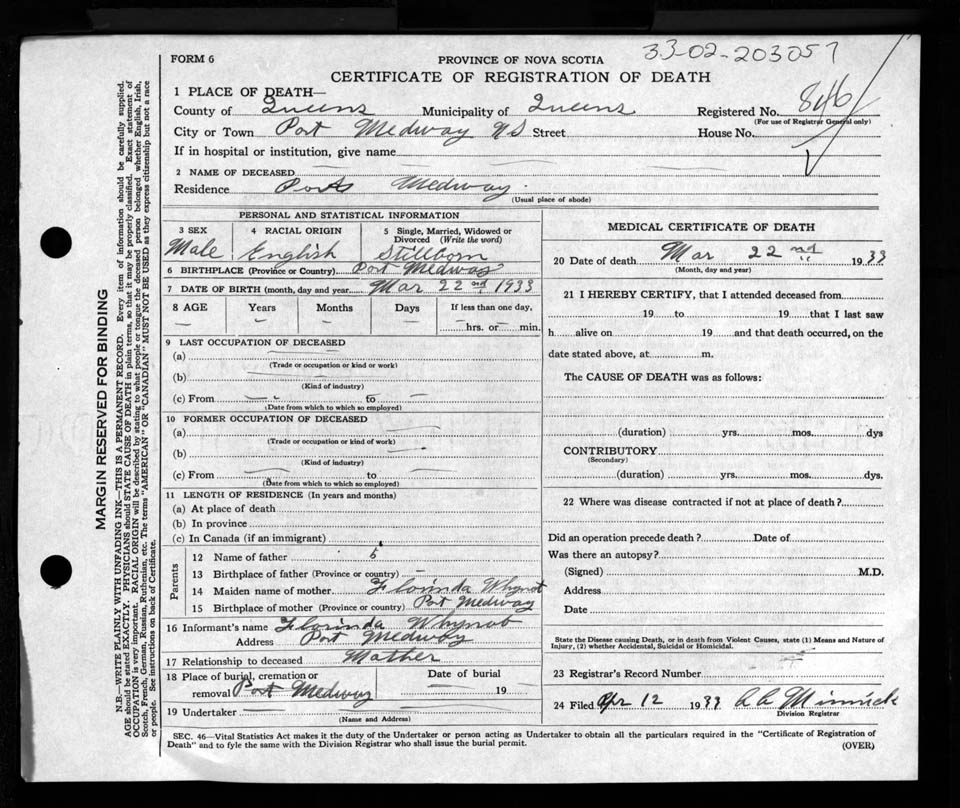 33-02-203057
FORM 6
PROVINCE OF NOVA SCOTIA
CERTIFICATE OF REGISTRATION OF DEATH
1 PLACE OF DEATH—
County of Queens Municipality of Queens Registered No. 846
(For use of Registrar General only)
City or Town Port Medway NS Street House No.
If in hospital or institution, give name
2 NAME OF DECEASED
Residence Port Medway
(Usual place of abode)
PERSONAL AND STATISTICAL INFORMATION
3 SEX
Male
4 RACIAL ORIGIN
English
5 Single, Married, Widowed or
Divorced (Write the word)
Stillborn
6 BIRTHPLACE (Province or Country) Port Medway
7 DATE OF BIRTH (month, day and year) Mar 22nd 1933
8 AGE Years Months Days If less than one day,
— — — — hrs. or — min.
9 LAST OCCUPATION OF DECEASED
(a)
(Trade or occupation or kind or work)
(b)
(Kind of industry)
(c) From to
(Date from which to which so employed)
10 FORMER OCCUPATION OF DECEASED
(a)
(Trade or occupation or kind of work)
(b)
(Kind of industry)
(c) From to
(Date from which to which so employed)
11 LENGTH OF RESIDENCE (In years and months)
(a) At place of death
(b) In province
(c) In Canada (if an immigrant)
Parents
12 Name of father
13 Birthplace of father (Province or country) —
14 Maiden name of mother Florinda Whynot
15 Birthplace of mother (Province or country) Port Medway
16 Informant's name Florinda Whynot
Address Port Medway
17 Relationship to deceased Mother
18 Place of burial, cremation or
removal Port Medway
Date of burial
— 19 —
19 Undertaker
(Name and Address)
MEDICAL CERTIFICATE OF DEATH
20 Date of death Mar 22nd 1933
(Month, day and year)
21 I HEREBY CERTIFY, that I attended deceased from
19 to 19 that I last saw
h alive on 19 and that death occurred, on the
date stated above, at m.
The CAUSE OF DEATH was as follows:
(duration) yrs. mos. dys
CONTRIBUTORY
(Secondary)
(duration) yrs. mos. dys.
22 Where was disease contracted if not at place of death?
Did an operation precede death? Date of
Was there an autopsy?
(Signed) M.D.
Address
Date
State the Disease causing Death, or in death from Violent Causes, state (1) Means and Nature of
Injury, (2) whether Accidental, Suicidal or Homicidal.
23 Registrar's Record Number
24 Filed Apr 12 1933 Minnick
Division Registrar
SEC. 46—Vital Statistics Act makes it the duty of the Undertaker or person acting as Undertaker to obtain all the particulars required in the "Certificate of Registration of
Death" and to fyle the same with the Division Registrar who shall issue the burial permit.
(OVER)
MARGIN RESERVED FOR BINDING
N.B.—WRITE PLAINLY WITH UNFADING INK—THIS IS A PERMANENT RECORD. Every item of information should be carefully supplied.
AGE should be stated EXACTLY. PHYSICIANS should STATE CAUSE OF DEATH in plain terms, so that it may be properly classified. Exact statement of
OCCUPATION is very important. RACIAL ORIGIN will be described by stating to what people or tongue the deceased person belonged whether English, Irish,
Scotch, French, German, Russian, Ruthenian, etc. The terms "AMERICAN" OR "CANADIAN" MUST NOT BE USED as they express citizenship but not a race
or people. See instructions on back of Certificate.